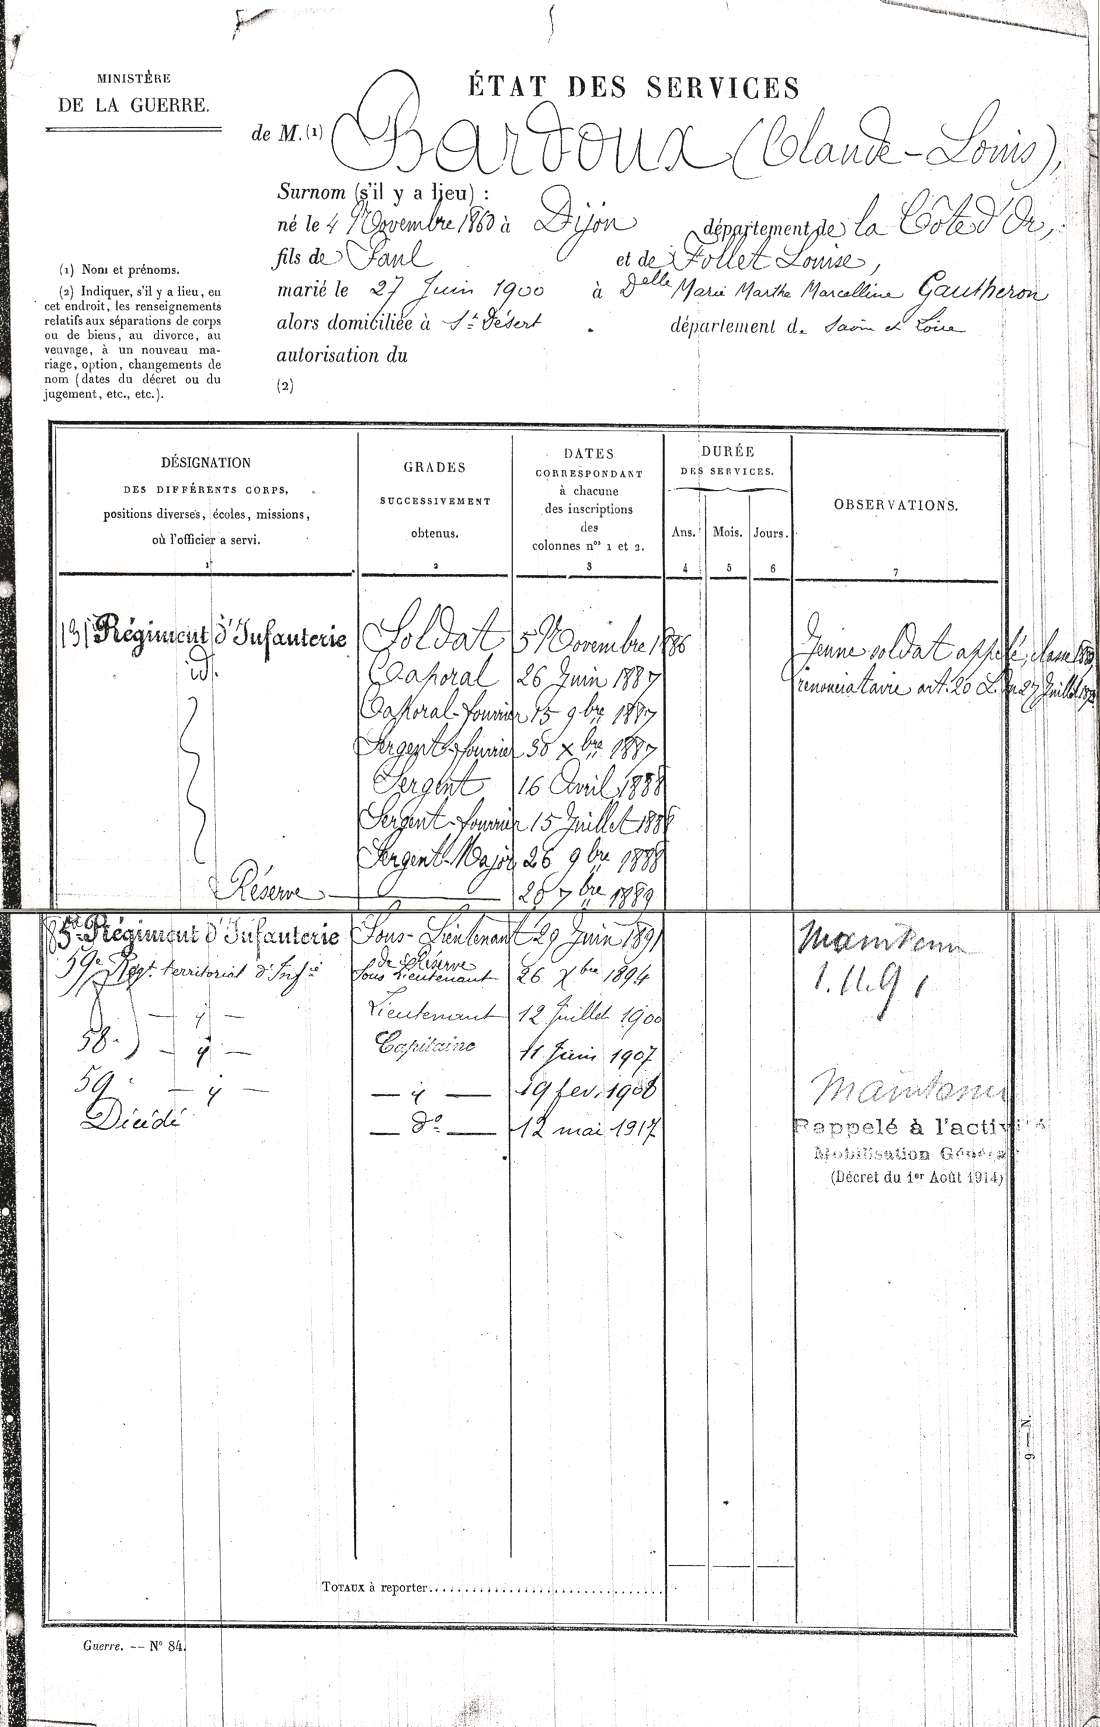 MINISTÈRE
DE LA GUERRE.
ÉTAT DES SERVICES
de M. (1) Bardoux (Claude-Louis),
Surnom (s'il y a lieu) :
né le 4 Novembre 1860 à Dijon département de la Côte d'Or,
fils de Paul et de Follet Louise,
marié le 27 Juin 1900 à Delle Marie Marthe Marcelline Gautheron
alors domiciliée à St Désert département de Saône et Loire
autorisation du
(2)
(1) Nom et prénoms.
(2) Indiquer, s'il y a lieu, en
cet endroit, les renseignements
relatifs aux séparations de corps
ou de biens, au divorce, au
veuvage, à un nouveau ma-
riage, option, changements de
nom (dates du décret ou du
jugement, etc., etc.).
DÉSIGNATION
DES DIFFÉRENTS CORPS,
positions diverses, écoles, missions,
où l'officier a servi.
1
GRADES
SUCCESSIVEMENT
obtenus.
2
DATES
CORRESPONDANT
à chacune
des inscriptions
des
colonnes nos 1 et 2.
3
DURÉE
DES SERVICES.
Ans. Mois. Jours.
4 5 6
OBSERVATIONS.
7
131e Régiment d'Infanterie Soldat 5 Novembre 1886 Jeune soldat appelé, classe
id. Caporal 26 Juin 1887 renonciataire art. 20 L. du 27 Juillet
Caporal-fourrier 15 9bre 1887
Sergent-fourrier 30 Xbre 1887
Sergent 16 Avril 1888
Sergent-fourrier 15 Juillet 1888
Sergent-Major 26 9bre 1888
Réserve 20 7bre 1889
85e Régiment d'Infanterie Sous-Lieutenant de Réserve 29 Juin 1891 Maintenu
59e Regt territorial d'Infie Sous Lieutenant 26 Xbre 1894 1.11.91
— y — Lieutenant 12 Juillet 1900
58e — y — Capitaine 11 Juin 1907
59e — y — — y — 19 fev. 1908 Maintenu
Décédé — do — 12 mai 1917
Rappelé à l'activité
Mobilisation Générale
(Décret du 1er Août 1914)
TOTAUX à reporter
Guerre. — N° 84.
9—N.